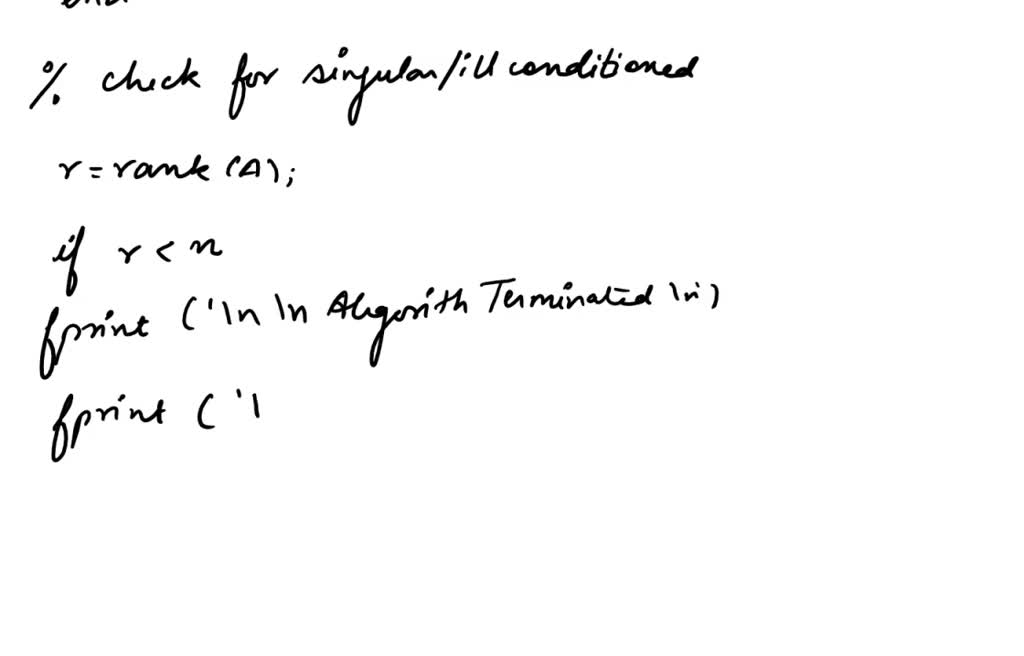 end
% check for singular/ill conditioned
r = rank (A);
if r < n
fprint ('\n \n Algorith Terminated \n')
fprint ( '\